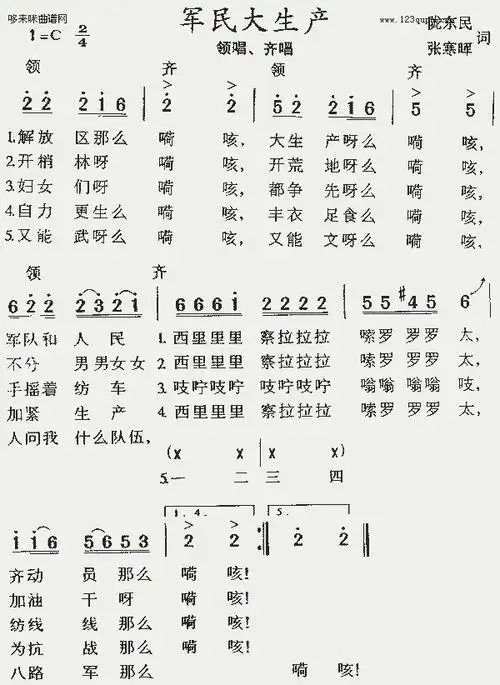 哆来咪曲谱网
军民大生产
www.123qup
1=C 2/4
领唱、齐唱
陇东民
张寒晖 词
领 齐 领 齐
2 2 2 1 6 | 2 2 | 5 2 2 1 6 | 5 5
1.解放 区那么 嗬 咳, 大生 产呀么 嗬 咳,
2.开梢 林呀 嗬 咳, 开荒 地呀么 嗬 咳,
3.妇女 们呀 嗬 咳, 都争 先呀么 嗬 咳,
4.自力 更生么 嗬 咳, 丰衣 足食么 嗬 咳,
5.又能 武呀么 嗬 咳, 又能 文呀么 嗬 咳,
领 齐
6 2 2 2 3 2 1 | 6 6 6 1 2 2 2 2 | 5 5 #4 5 6
军队和 人 民 1.西里里里 察拉拉拉 嗦罗 罗罗 太,
不分 男男女女 2.西里里里 察拉拉拉 嗦罗 罗罗 太,
手摇着 纺 车 3.吱咛吱咛 吱咛吱咛 嗡嗡 嗡嗡 吱,
加紧 生 产 4.西里里里 察拉拉拉 嗦罗 罗罗 太,
人问我 什么队伍,
(x x | x x)
5.一 二 三 四
1. 4. 5.
1 1 6 5 6 5 3 | 2 2 :‖ 2 2 ‖
齐动 员那么 嗬 咳!
加油 干呀 嗬 咳!
纺线 线那么 嗬 咳!
为抗 战那么 嗬 咳!
八路 军那么 嗬 咳!